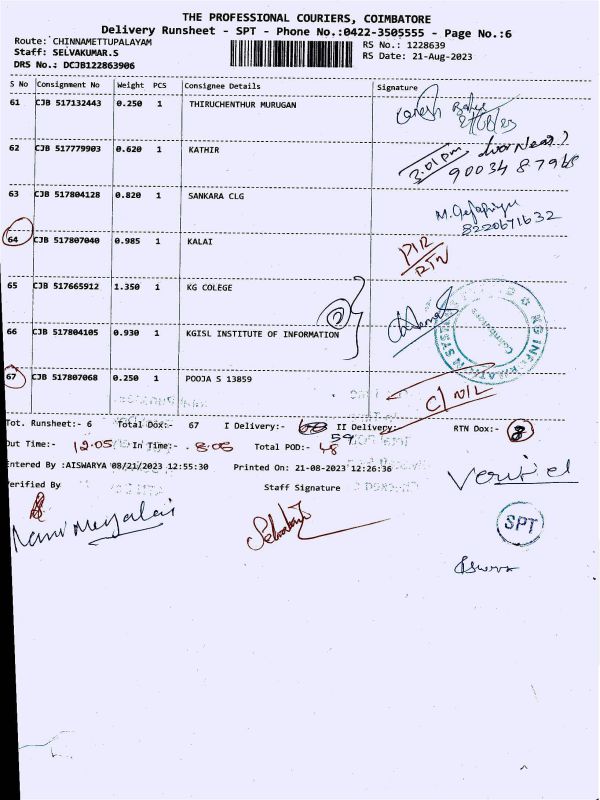 THE PROFESSIONAL COURIERS, COIMBATORE
Delivery Runsheet - SPT - Phone No.:0422-3505555 - Page No.:6
Route: CHINNAMETTUPALAYAM
RS No.: 1228639
Staff: SELVAKUMAR.S
RS Date: 21-Aug-2023
DRS No.: DCJB122863906
S No Consignment No Weight PCS Consignee Details Signature
61 CJB 517132443 0.250 1 THIRUCHENTHUR MURUGAN
62 CJB 517779903 0.620 1 KATHIR 3.01pm
90034 87968
63 CJB 517804128 0.820 1 SANKARA CLG
8220671632
64 CJB 517807040 0.985 1 KALAI
RTN
65 CJB 517665912 1.350 1 KG COLEGE
2
66 CJB 517804105 0.930 1 KGISL INSTITUTE OF INFORMATION
67 CJB 517807068 0.250 1 POOJA S 13859
C/NIL
Tot. Runsheet:- 6 Total Dox:- 67 I Delivery:- II Delivery: RTN Dox:- 8
59
Out Time:- 12:05 In Time:- 8:05 Total POD:- 48
Entered By :AISWARYA 08/21/2023 12:55:30 Printed On: 21-08-2023 12:26:36
Verified By Staff Signature
SPT